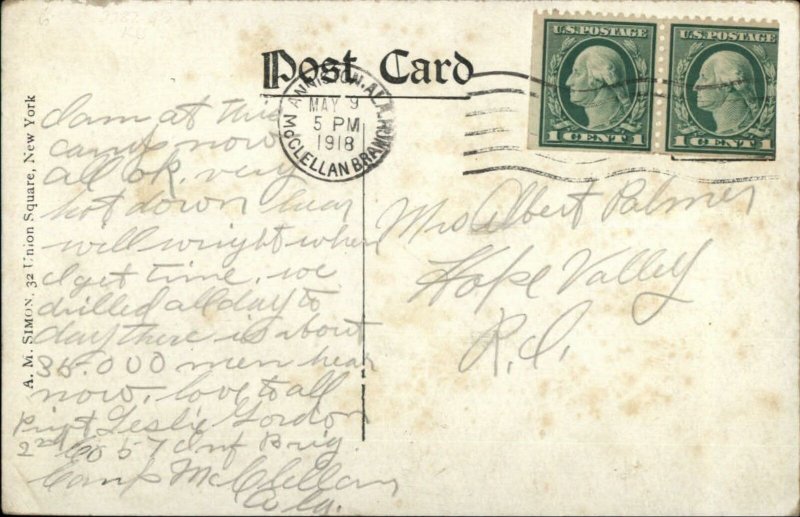 Post Card
U.S. POSTAGE
1 CENT 1
U.S. POSTAGE
1 CENT 1
ANNISTON, ALA.
MAY 9
5 PM
1918
McCLELLAN BRANCH
A. M. SIMON, 32 Union Square, New York
I am at this
camp now
all ok. very
hot down hear
will wright when
I get time. we
drilled all day to
day there is about
35.000 men hear
now. love to all
Privt Leslie Gordon
2nd Co 57 Inf Brig.
Camp McClellan
Ala.
Mrs Albert Palmer
Hope Valley
R.I.